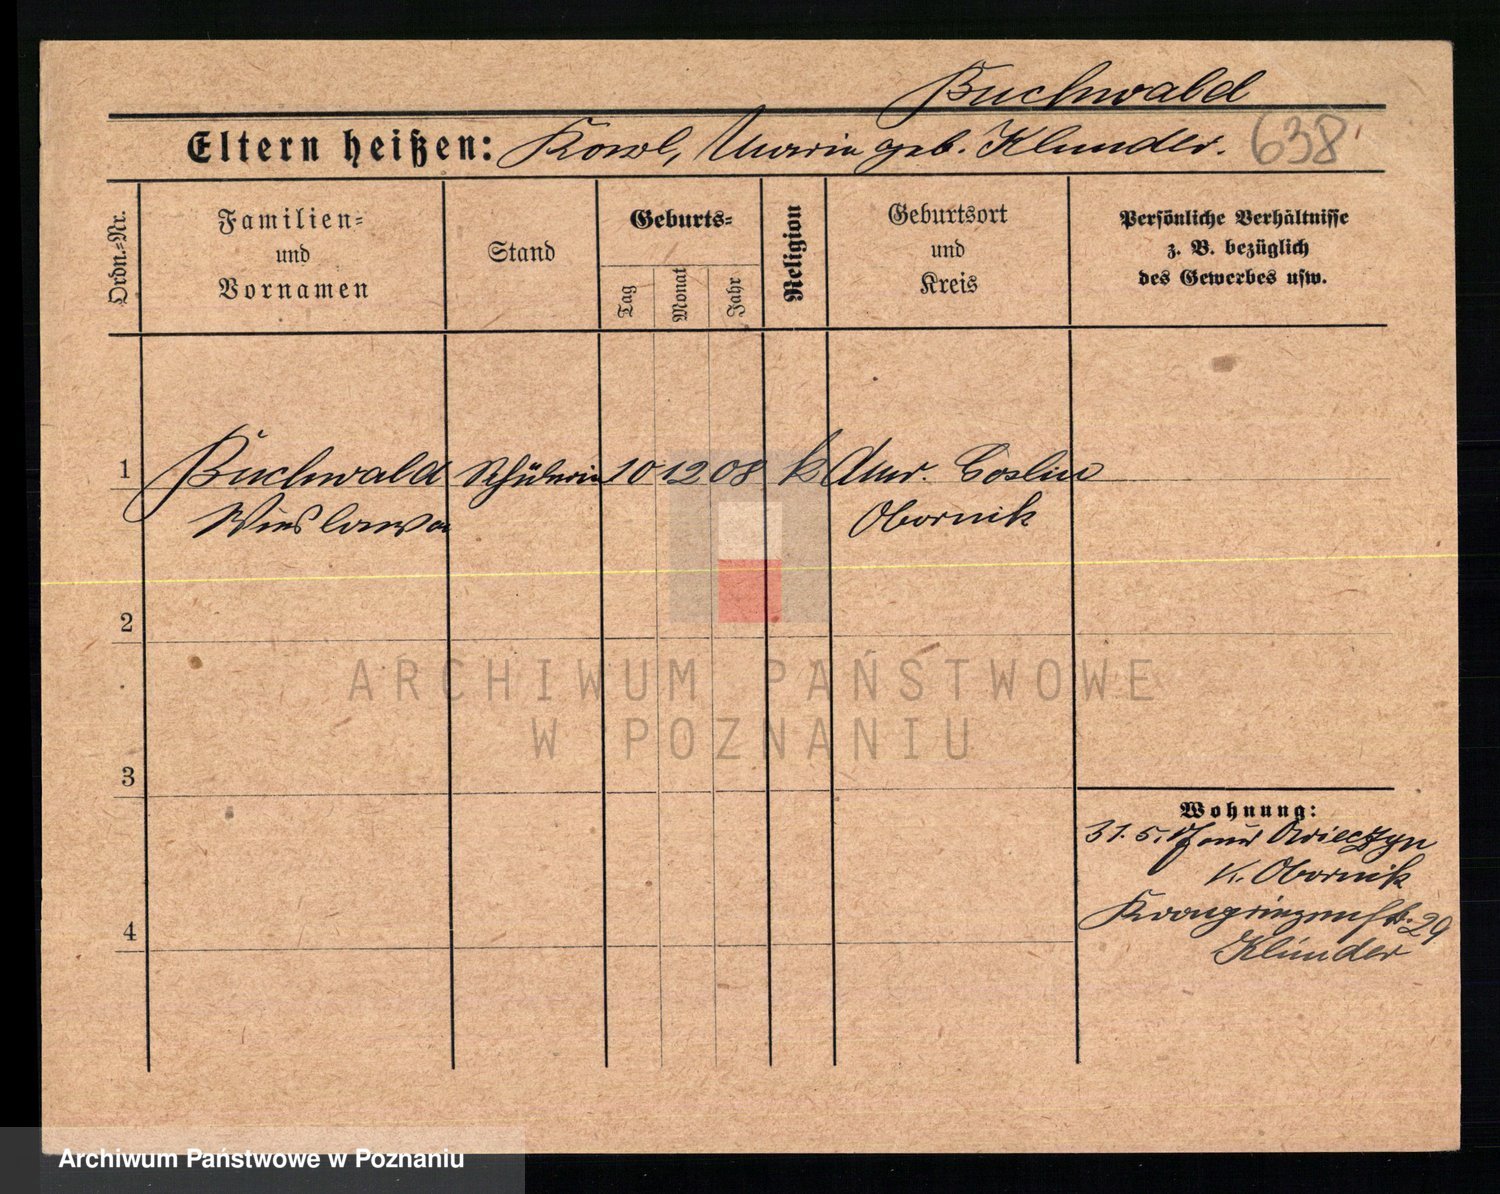 Buchwald
Eltern heißen: Karl, Maria geb. Klunder. 638
Ordn.-Nr.
Familien-
und
Vornamen
Stand
Geburts-
Tag
Monat
Jahr
Religion
Geburtsort
und
Kreis
Persönliche Verhältnisse
z. B. bezüglich
des Gewerbes usw.
1 Buchwald Schülerin 10 12 08 k Mur. Goslin
Wieslawa Obornik
2
3
4
Wohnung:
31.5.17 aus Owieczyn
K. Obornik
29
Klünder
ARCHIWUM PAŃSTWOWE
W POZNANIU
Archiwum Państwowe w Poznaniu